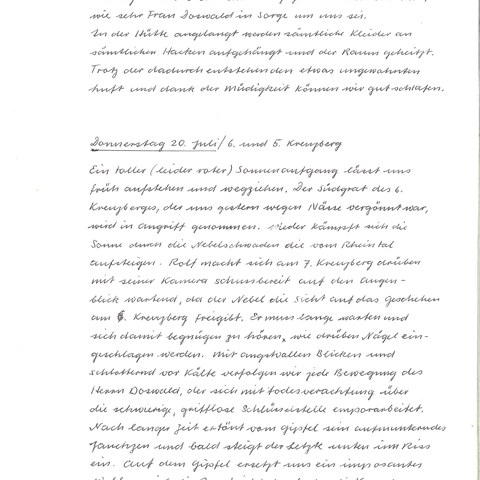 wie sehr Frau Doswald in Sorge um uns sei.
In der Hütte angelangt werden sämtliche Kleider an
sämtlichen Hacken aufgehängt und der Raum geheitzt.
Trotz der dadurch entstehenden etwas ungewohnten
Luft und dank der Müdigkeit können wir gut schlafen.
Donnerstag 20. Juli / 6. und 5. Kreuzberg
Ein toller (leider roter) Sonnenaufgang lässt uns
früh aufstehen und wegziehen. Der Südgrat des 6.
Kreuzberges, der uns gestern wegen Nässe vergönnt war,
wird in angriff genommen. Wieder kämpft sich die
Sonne durch die Nebelschwaden die vom Rheintal
aufsteigen. Rolf macht sich am 7. Kreuzberg drüben
mit seiner Kamera schussbereit auf den Augen-
blick wartend, da der Nebel die Sicht auf das Geschehen
am 6. Kreuzberg freigibt. Er muss lange warten und
sich damit begnügen zu hören, wie drüben Nägel ein-
geschlagen werden. Mit angstvollen Blicken und
schlotternd vor Kälte verfolgen wir jede Bewegung des
Herrn Doswald, der sich mit todesverachtung über
die schwierige, grifflose Schlüsselstelle emporarbeitet.
Nach langer Zeit ertönt vom Gipfel ein aufmunterndes
Jauchzen und bald steigt der Letzte unten im Riss
ein. Auf dem Gipfel ersetzt uns ein imposantes